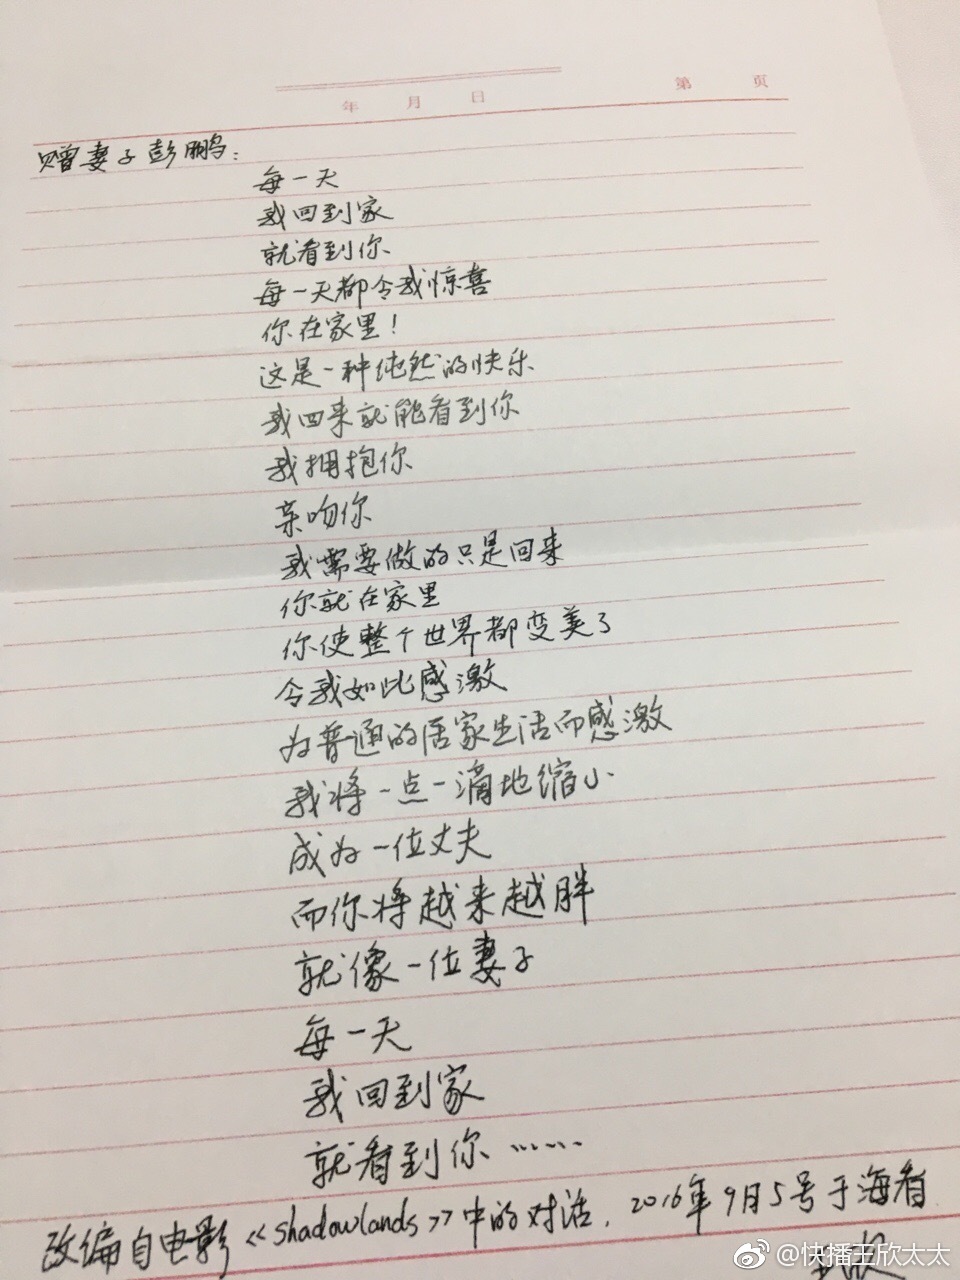 年 月 日 第 页
赠妻子彭鹏:
每一天
我回到家
就看到你
每一天都令我惊喜
你在家里!
这是一种纯然的快乐
我回来就能看到你
我拥抱你
亲吻你
我需要做的只是回来
你就在家里
你使整个世界都变美了
令我如此感激
为普通的居家生活而感激
我将一点一滴地缩小
成为一位丈夫
而你将越来越胖
就像一位妻子
每一天
我回到家
就看到你……
改编自电影《shadowlands》中的对话, 2016年9月5号于海看
@快播王欣太太